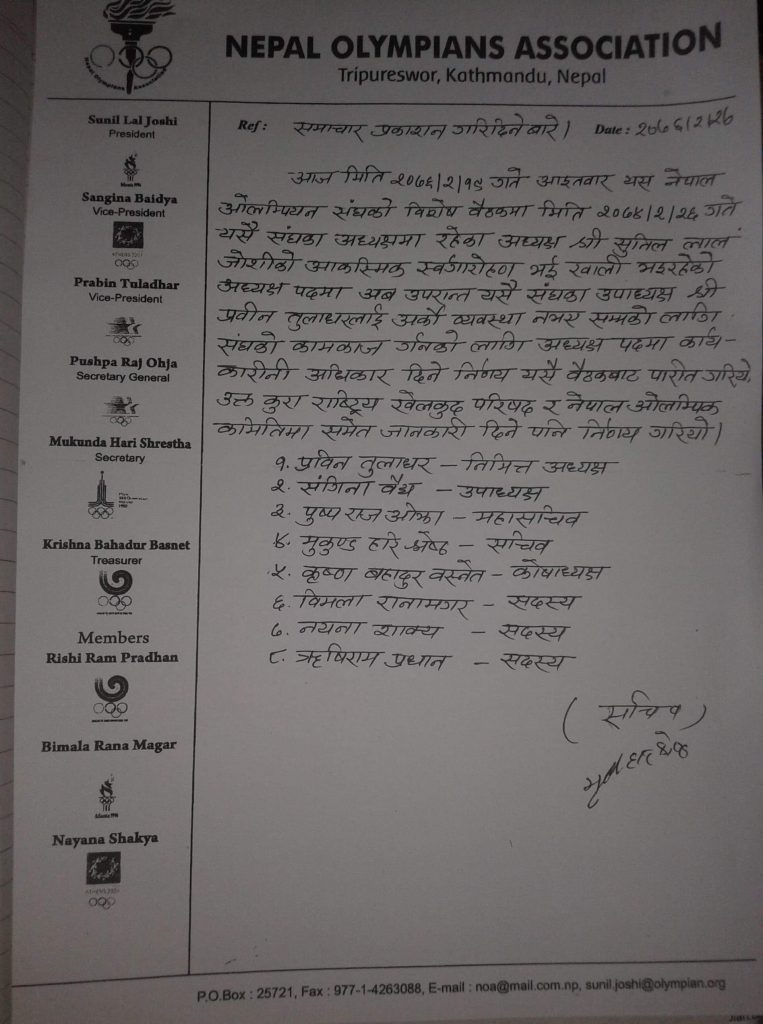 NEPAL OLYMPIANS ASSOCIATION
Tripureswor, Kathmandu, Nepal
Nepal Olympians Association
Sunil Lal Joshi
President
Atlanta 1996
Sangina Baidya
Vice-President
ATHENS 2004
Prabin Tuladhar
Vice-President
Pushpa Raj Ojha
Secretary General
Mukunda Hari Shrestha
Secretary
Krishna Bahadur Basnet
Treasurer
Members
Rishi Ram Pradhan
Bimala Rana Magar
Atlanta 1996
Nayana Shakya
ATHENS 2004
Ref : समाचार प्रकाशन गरिदिने बारे। Date : २०७६/२/२७
आज मिति २०७६/२/१९ गते आइतवार यस नेपाल
ओलम्पियन संघको विशेष वैठकमा मिति २०७४/२/२६ गते
यसै संघका अध्यक्षमा रहेका अध्यक्ष श्री सुनिल लाल
जोशीको आकस्मिक स्वर्गारोहण भई खाली भइरहेको
अध्यक्ष पदमा अब उपरान्त यसै संघका उपाध्यक्ष श्री
प्रवीन तुलाधरलाई अर्को व्यवस्था नभए सम्मको लागि
संघको कामकाज गर्नको लागि अध्यक्ष पदमा कार्य-
कारीनी अधिकार दिने निर्णय यसै वैठकबाट पारीत गरियो,
उक्त कुरा राष्ट्रिय खेलकुद परिषद र नेपाल ओलम्पिक
कमितिमा समेत जानकारी दिने पनि निर्णय गरियो।
१. प्रविन तुलाधर – निमित्त अध्यक्ष
२. संगिना वैद्य – उपाध्यक्ष
३. पुष्प राज ओझा – महासचिव
४. मुकुण्ड हरि श्रेष्ठ – सचिव
५. कृष्ण बहादुर वस्नेत – कोषाध्यक्ष
६. विमला रानामगर – सदस्य
७. नयना शाक्य – सदस्य
८. ऋषिराम प्रधान – सदस्य
( सचिव )
P.O.Box : 25721, Fax : 977-1-4263088, E-mail : noa@mail.com.np, sunil.joshi@olympian.org